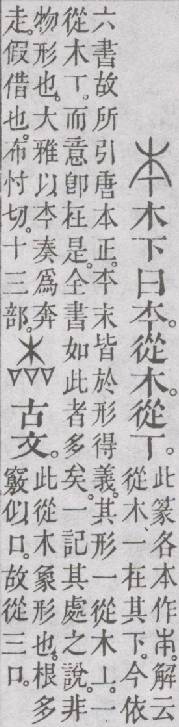 木下曰本。從木。從丅。
此篆各本作𣎴。解云
從木、一在其下。今依
六書故所引唐本正。本末皆於形得義。其形一從木丄。一
從木丅。而意卽在是。全書如此者多矣。一記其處之說。非
物形也。大雅以本奏爲奔
走。假借也。布忖切。十三部。
古文。
此從木象形也。根多
竅似口。故從三口。